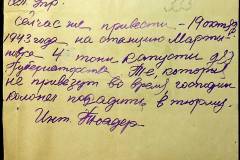 Сейчас же привести - 19 октября
1943 года на станцию Марти-
новка 4 тонн капусти для
Губернаторства Те, которие
не привезут во время господин
колонел посадить в тюрму.
Инт. Тоадер.